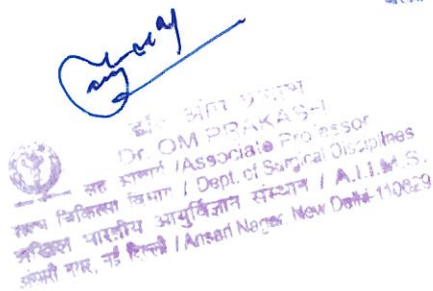 Dr. OM PRAKASH
सह आचार्य / Associate Professor
शल्य चिकित्सा विभाग / Dept. of Surgical Disciplines
अखिल भारतीय आयुर्विज्ञान संस्थान / A.I.I.M.S.
अंसारी नगर, नई दिल्ली / Ansari Nagar, New Delhi-110029